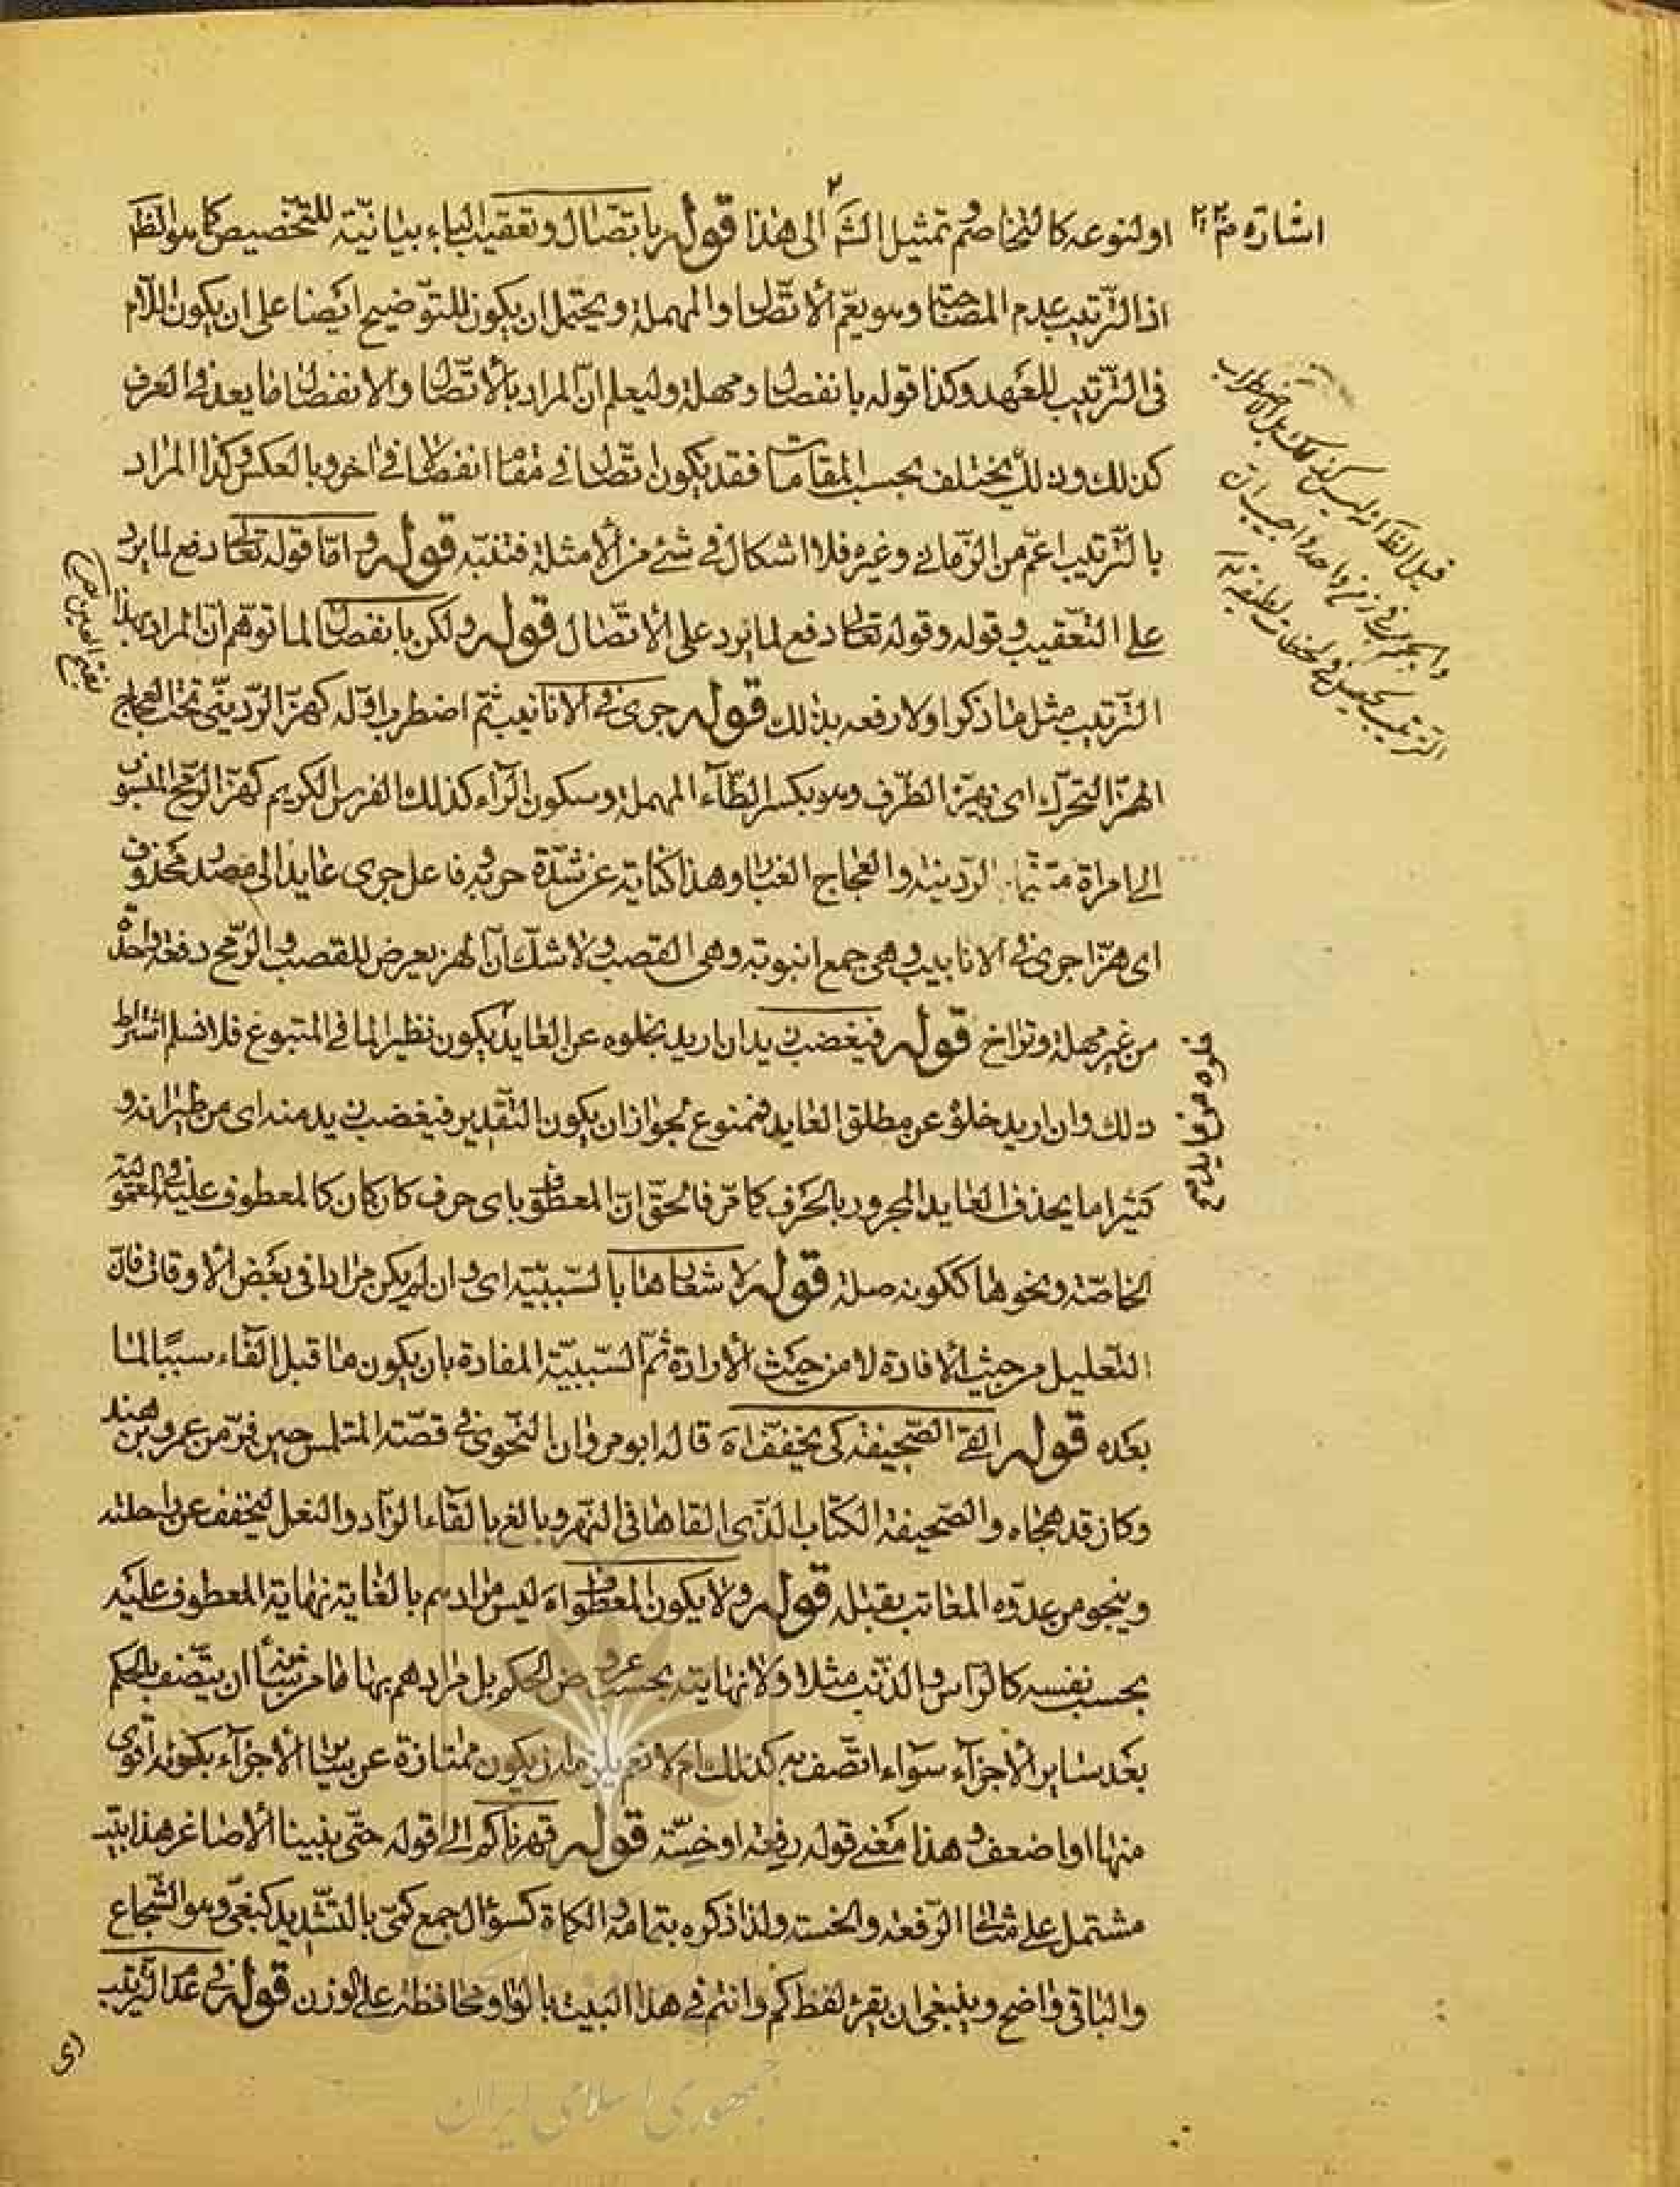 اولنوعه كالتخاصم و تمثيل الشـ الى هذا قوله باتصال وتعقيب الباء بيانيّة للتخصيص كما هو الظ
اذ الترتيب عدم المصاحبة وهو يعمّ الاتصال والمهملة ويحتمل ان يكون للتوضيح ايضا على ان يكون اللام
فى الترتيب للعهد وكذا قوله بانفصال ومهملة وليعلم انّ المراد بالاتصال والانفصال ما يعد فى العرف
كذلك وذلك يختلف بحسب المقامات فقد يكون اتصال فى مقام انفصالا فى اخر وبالعكس وكذا المراد
بالترتيب اعمّ من الزمانى وغيره فلا اشكال فى شئ من الامثلة فتنبّه قوله وامّا قوله تعالى دفع لما يرد
على التعقيب وقوله وقوله تعالى دفع لما يرد على الاتصال قوله ولكن بانفصال لما توهم انّ المراد بهذا
الترتيب مثل ما ذكر اولا رفعه بذلك قوله جرى فى الانابيب ثمّ اضطرب اوّله كهزّ الردينىّ تحت العجاج
الهزّ التحرّك اى يهزّ الطرف وهو بكسر الطّاء المهملة وسكون الرّاء كذلك الفرس الكريم كهزّ الرمح المنسوب
الى امراة مسمّاة الردينه والعجاج الغبار وهذا كناية عن شدّة حربه فاعل جرى عايد الى مصدر محذوف
اى هزّا جرى فى الانابيب وهى جمع انبوبة وهى القصب ولا شكّ انّ الهز يعرض للقصب والرّمح دفعة واحدة
من غير مهلة وتراخ قوله فيغضب زيد ان اريد بخلوه عن العايد يكون نظير لما فى المتبوع فلا نسلم اشتراط
ذلك وان اريد خلوّه عن مطلق العايد فممنوع لجواز ان يكون التقدير فيغضب زيد منه اى من طيرانه و
كثيرا ما يحذف العايد المجرور بالحرف كما مرّ فالحقّ انّ المعطوف باى حرف كان كان كالمعطوف عليه فى
الخاصّة ونحوها ككونه صلة قوله لاشعارها بالسّببيّة اى وان لم يكن مرادا فى بعض الاوقات فانّ
التعليل من حيث الافادة لا من حيث الارادة ثمّ السّببيّة المفادة بان يكون ما قبل الفاء سببًا لما
بعده قوله القى الصّحيفة كى يخفّف اه قاله ابو مروان النحوى فى قصّة المتلمس حين فرّ من عمرو بن هند
وكان قد هجاه والصّحيفة الكتاب الذى القاها فى النهر وبالغ بالقاء الزّاد والنعل ليخفف عن راحلته
وينجو من عدوّه قوله ولا يكون المعطوف اه ليس مرادهم بالغاية نهاية المعطوف عليه
بحسب نفسه كالرّاس والذّنب مثلا ولا نهايته بحسب عروض الحكم بل مرادهم بها ما من شانه ان يتّصف بالحكم
بعد ساير الاجزآء سوآء اتّصف به كذلك ام لا نعم يلزم ان يكون ممتازة عن ساير الاجزآء بكونه اقوى
منها او اضعف وهذا معنى قوله رفعة او خسّة قوله قهرناكم الى قوله حتى بنينا الاصاغر هذا بيت
مشتمل على مثال الرّفعة والخسة ولذا ذكره بتمامه والكماة كسؤال جمع كمّى بالتشديد كبغىّ وهو الشجاع
والباقى واضح وينبغى ان يقرء لفظ كم وانتم فى هذا البيت بالواو محافظة على الوزن قوله فى عدم الترتيب
خلوه من عايد